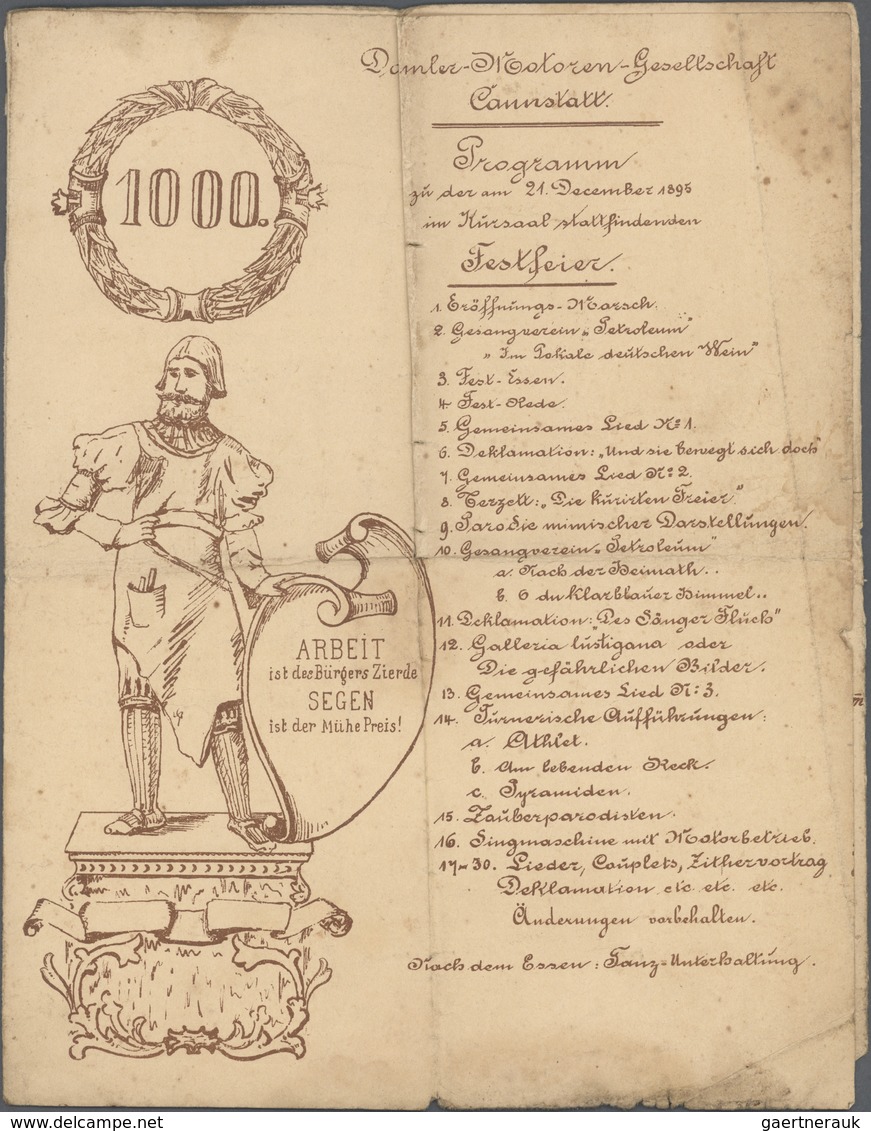 1000.
ARBEIT
ist des Bürgers Zierde
SEGEN
ist der Mühe Preis!
Daimler-Motoren-Gesellschaft
Cannstatt.
Programm
zu der am 21. December 1895
im Kursaal stattfindenden
Festfeier.
1. Eröffnungs-Marsch.
2. Gesangverein „Petroleum"
„Im Lokale deutschen Wein"
3. Fest-Essen.
4. Fest-Rede.
5. Gemeinsames Lied No 1.
6. Deklamation: „Und sie bewegt sich doch"
7. Gemeinsames Lied No 2.
8. Terzett: „Die kurirten Freier."
9. Parodie mimischer Darstellungen.
10. Gesangverein „Petroleum"
a. Nach der Heimath..
b. O du klarblauer Himmel..
11. Deklamation: „Des Sänger Fluch"
12. Galleria lustigana oder
Die gefährlichen Bilder.
13. Gemeinsames Lied No 3.
14. Turnerische Aufführungen:
a. Athlet.
b. Am lebenden Reck.
c. Pyramiden.
15. Zauberparodisten.
16. Singmaschine mit Motorbetrieb.
17-30. Lieder, Couplets, Zithervortrag
Deklamation etc. etc. etc.
Änderungen vorbehalten.
Nach dem Essen: Tanz-Unterhaltung.
gaertnerauk